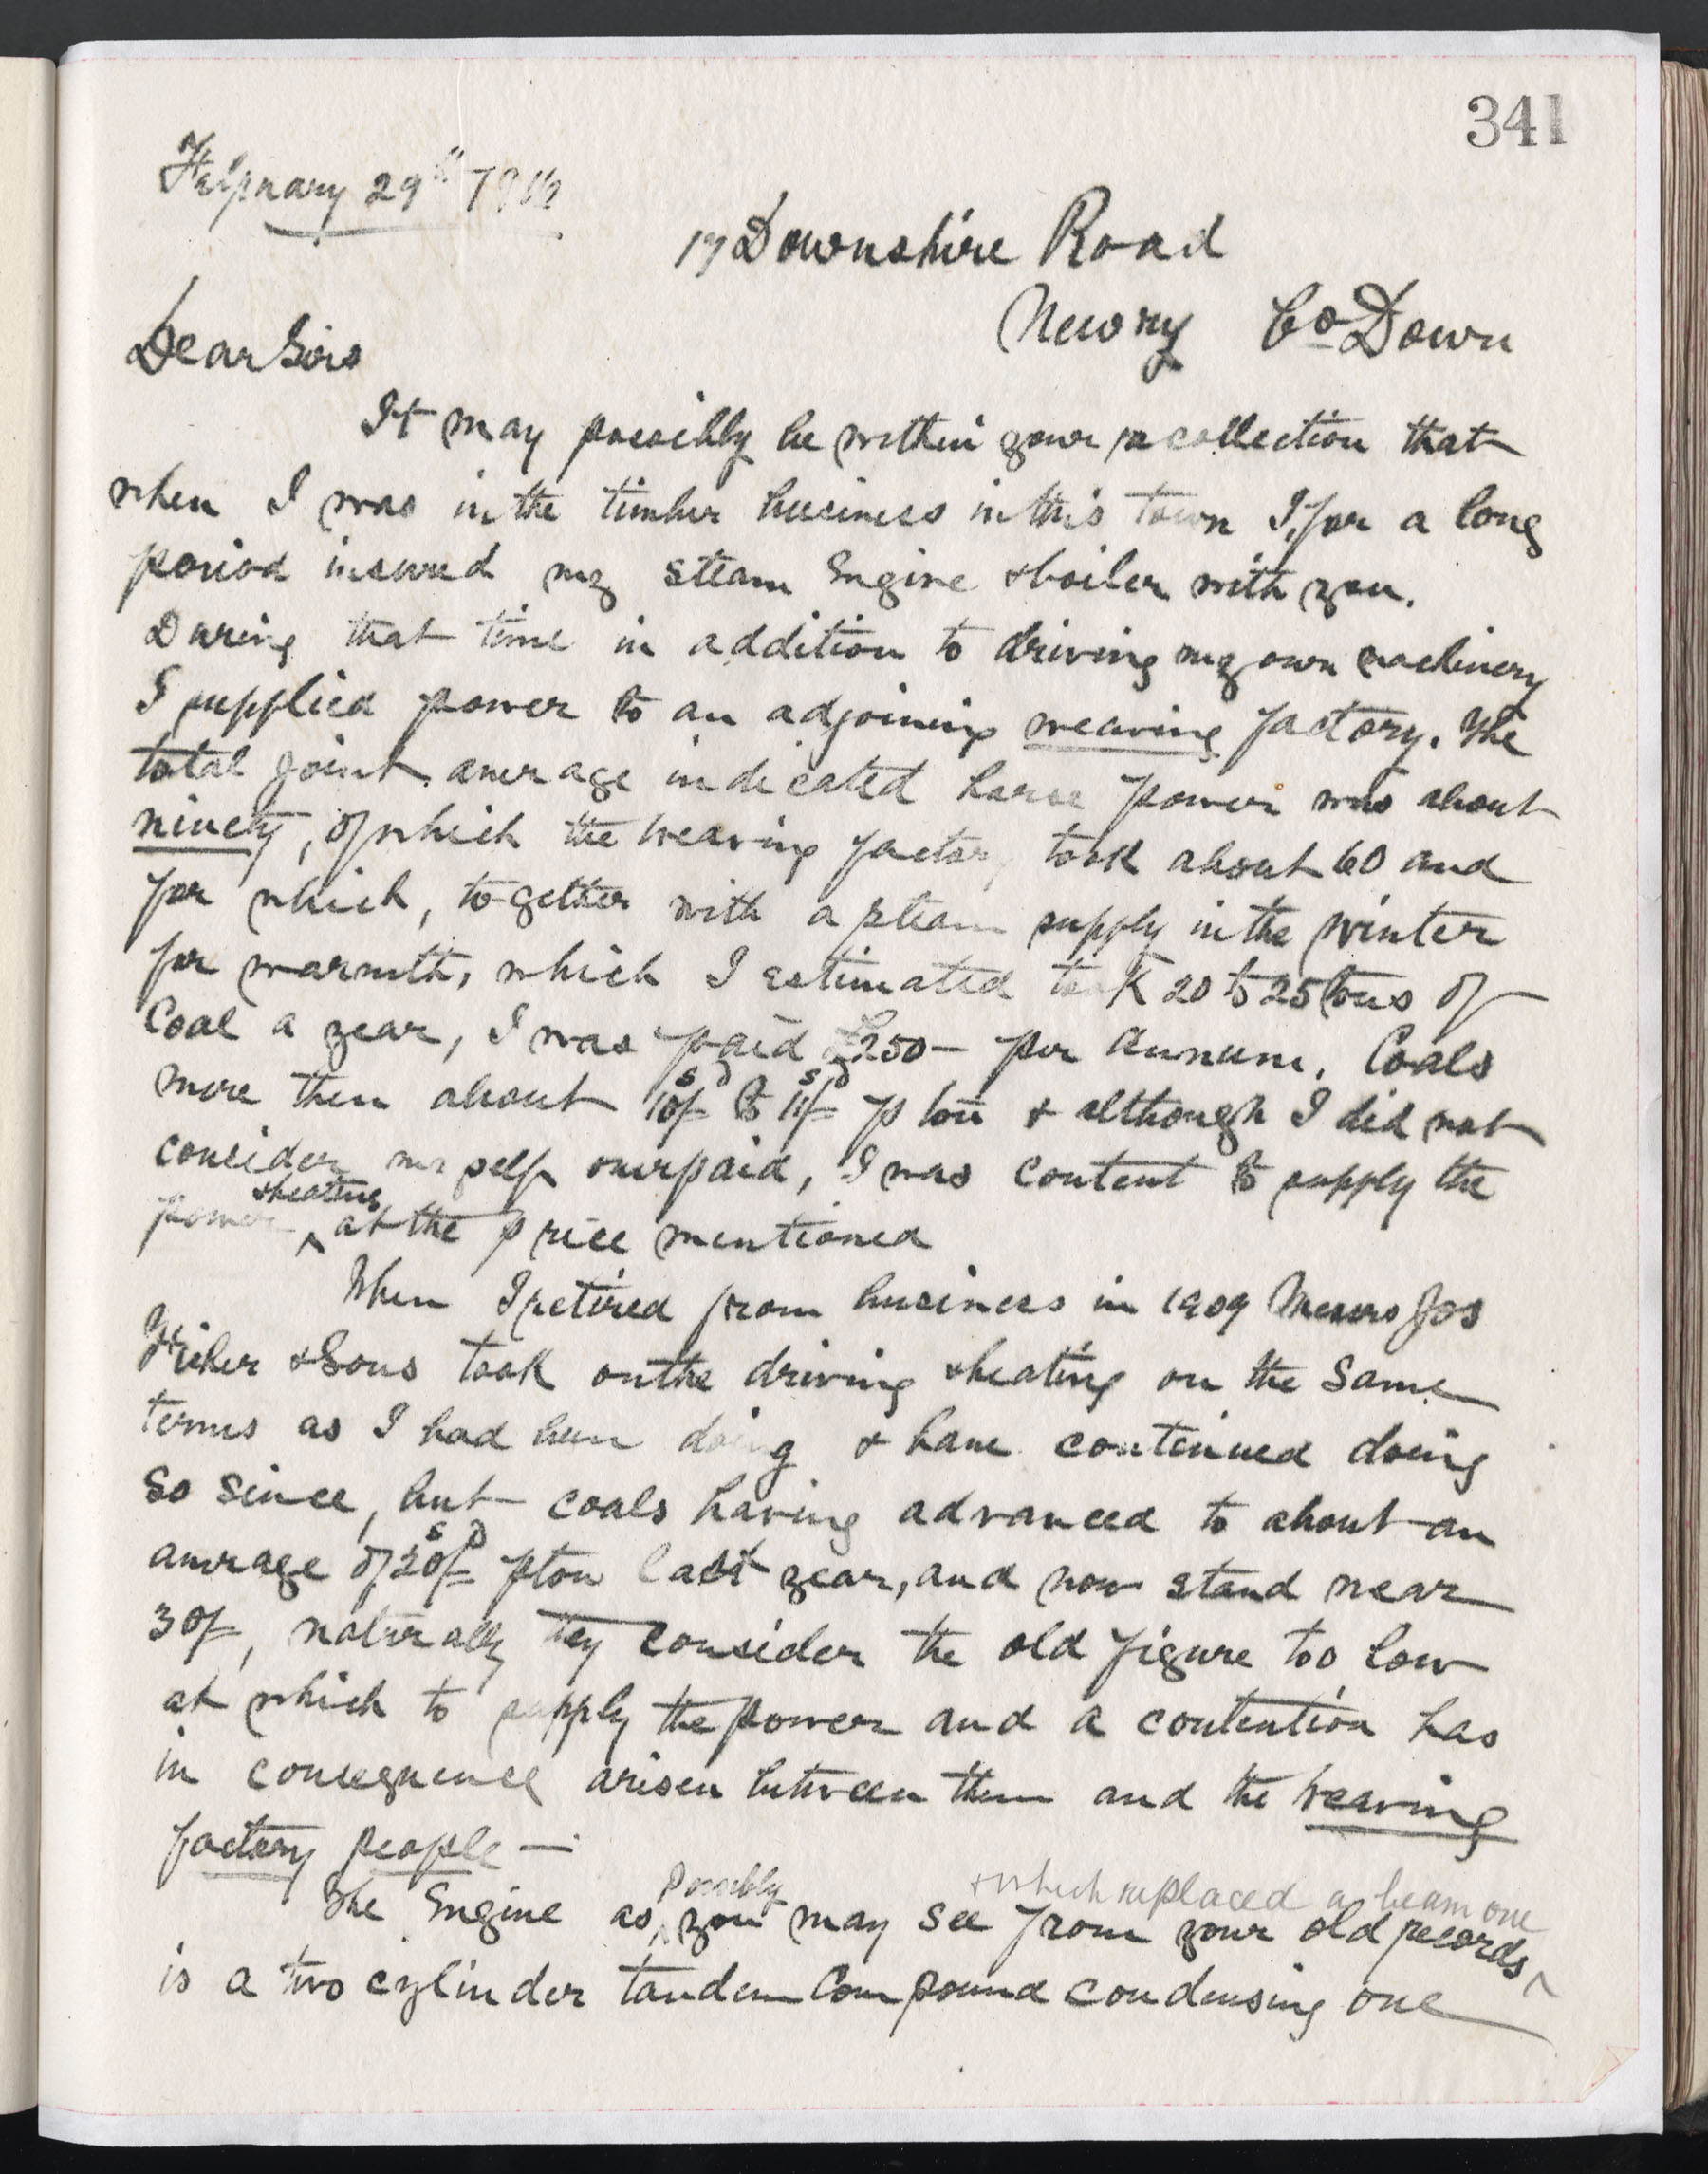 341
February 29th 1916
17 Downshire Road
Newry Co Down
Dear Sirs
It may possibly be within your recollection that
when I was in the timber business in this town I, for a long
period insured my steam Engine & boiler with you.
During that time in addition to driving my own machinery
I supplied power to an adjoining weaving factory. The
total joint average indicated horse power was about
ninety, of which the weaving factory took about 60 and
for which, together with a steam supply in the winter
for warmth, which I estimated took 20 to 25 tons of
Coal a year, I was paid £250 - per annum. Coals
were then about 10s/- to 11s/- p ton & although I did not
consider myself overpaid, I was content to supply the
power & heating at the price mentioned
When I retired from business in 1909 Messrs Jos
Fisher & Sons took on the driving & heating on the same
terms as I had been doing & have continued doing
so since, but coals having advanced to about an
average of 20s/- p ton last year, and now stand near
30/-, naturally they consider the old figure too low
at which to supply the power and a contention has
in consequence arisen between them and the weaving
factory people —
The Engine as possibly you may see from your old records & which replaced a beam one
is a two cylinder tandem Compound condensing one